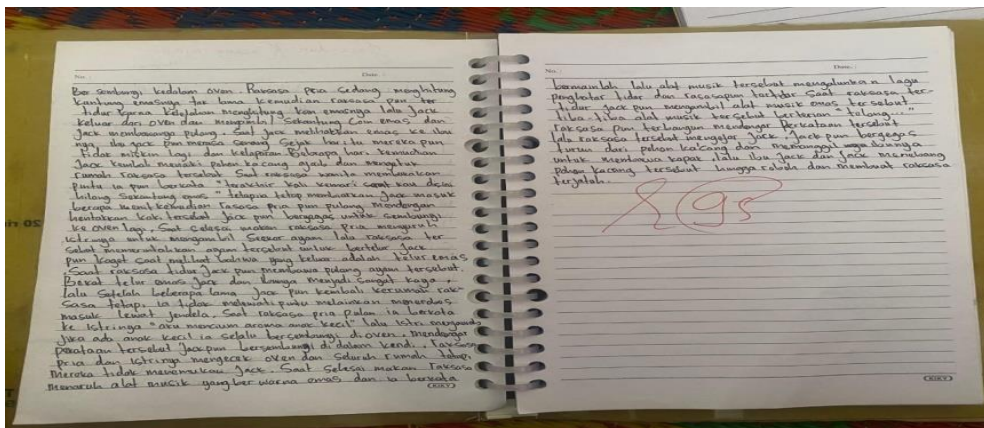 No. :
Date. :
Bersembunyi kedalam oven. Raksasa pria sedang menghitung
kantung emasnya tak lama kemudian raksasa pun ter
tidur karna kelelahan menghitung koin emasnya. lalu Jack
keluar dari oven dan mengambil sekantung koin emas dan
Jack membawanya pulang. Saat Jack melihatkan emas ke ibu
nya, ibu Jack pun merasa senang sejak hari itu mereka pun
tidak miskin lagi dan kelaparan. Beberapa hari kemudian
Jack kembali menaiki pohon kacang ajaib dan mengetuk
rumah raksasa tersebut. Saat raksasa wanita membukakan
pintu ia pun berkata "terakhir kali kemari saat kau disini
hilang sekantung emas" tetapia tetap membiarkan Jack masuk
berapa menit kemudian rasasa pria pun pulang mendengan
hentakkan kaki tersebut Jack pun bergegas untuk sembunyi
ke oven lagi, Saat selesai makan raksasa pria menyuruh
istrinya untuk mengambil seekor ayam lalu raksasa ter
sebut memerintahkan ayam tersebut untuk bertelur Jack
pun kaget saat melihat bahwa yang keluar adalah telur emas
. Saat raksasa tidur Jack pun membawa pulang ayam tersebut.
Berkat telur emas Jack dan ibunya menjadi sangat kaya,
lalu setelah beberapa lama Jack pun kembali kerumah rak-
sasa tetapi ia tidak melewati pintu melainkan menerobos
masuk lewat jendela, Saat raksasa pria pulan ia berkata
ke istringa "aku mencium aroma anak kecil" lalu istri
jika ada anak kecil ia selalu bersembunyi di oven. mendengar
perataan tersebut Jack pun bersembunyi di dalam kendi, raksasa
pria dan istrinya mengecek oven dan seluruh rumah tetapi
mereka tidak menemukan Jack. Saat selesai makan raksasa
menaruh alat musik yang berwarna emas dan ia berkata
KIKY
No. :
Date. :
bermainlah lalu alat musik tersebut mengalunkan lagu
penghatar tidur dan rasasapun tertidur saat raksasa ter-
tidur Jack pun mengambil alat musik emas tersebut
tiba-tiba alat musik tersebut berteriak tolong..."
raksasa pun terbangun mendengar perkataan tersebut
lalu raksasa tersebut mengejar Jack. Jack pun bergegas
turun dari pohon kacang dan memanggil ibunya
untuk membawa kapak, lalu ibu Jack dan Jack menebang
pohon kacang tersebut hingga roboh dan membuat raksasa
terjatuh.
95
KIKY